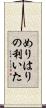 めりはり
の利いた